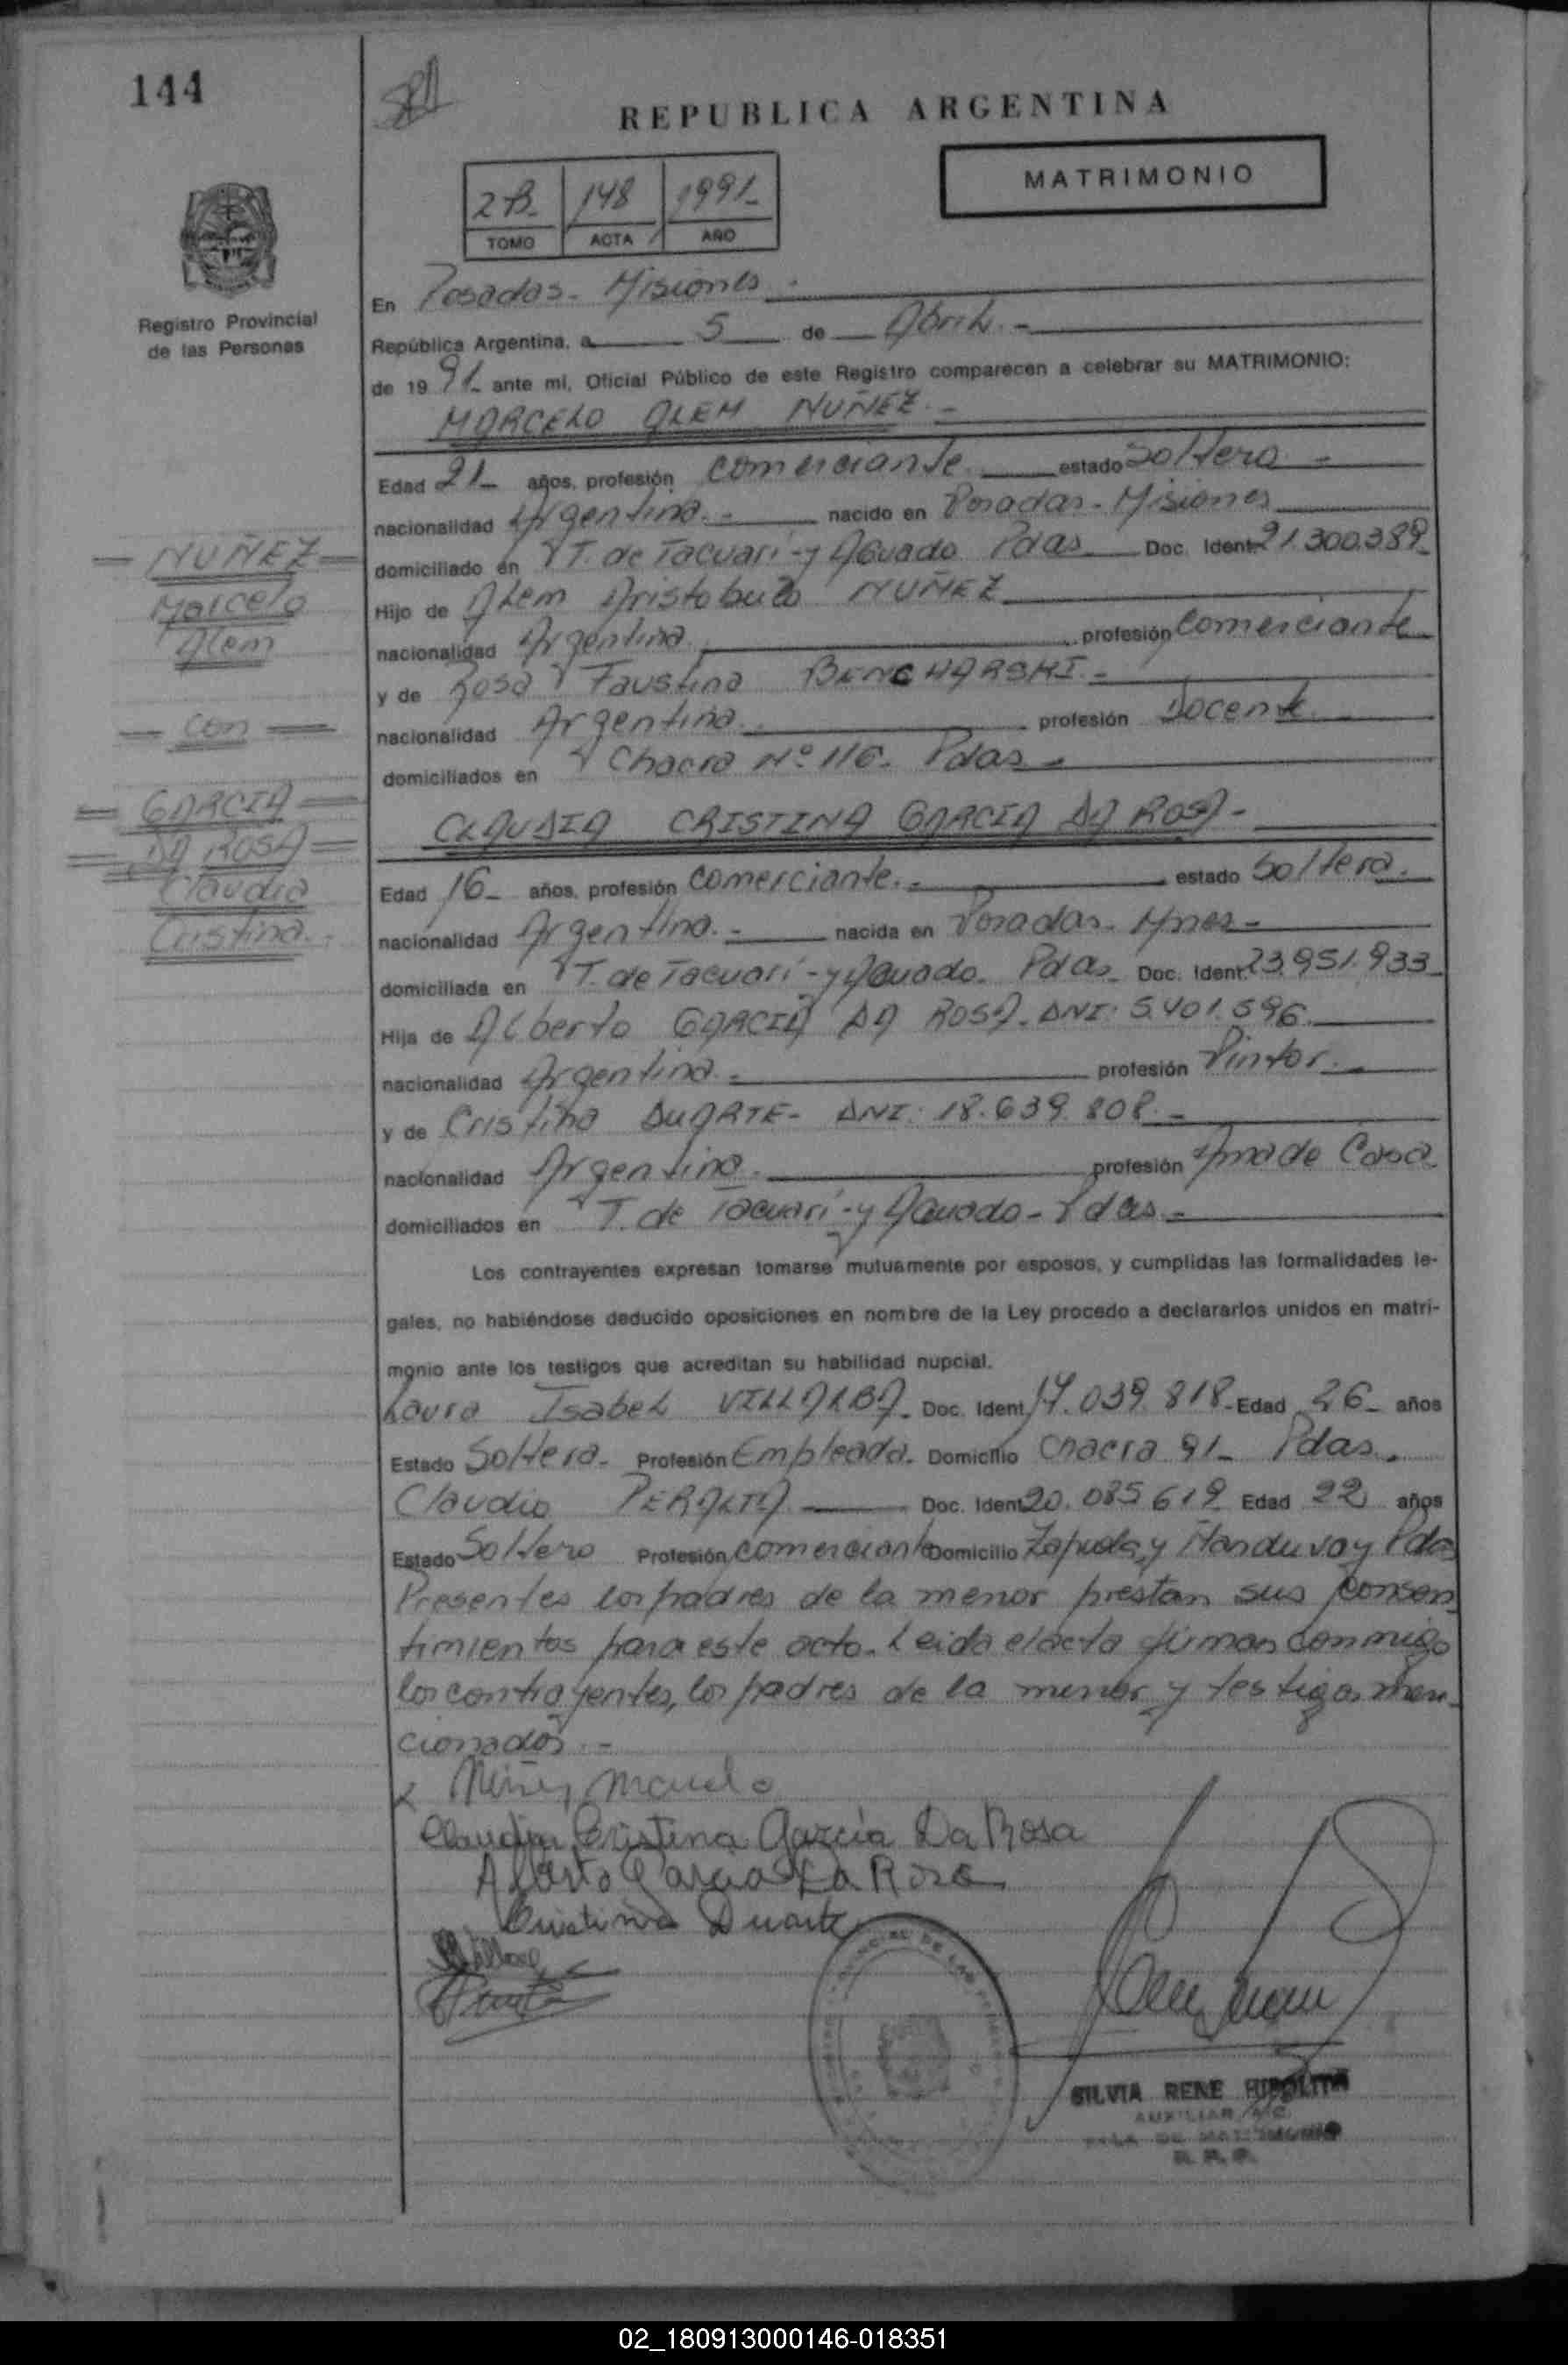 144
REPUBLICA ARGENTINA
MATRIMONIO
2 B- 148 1991-
TOMO ACTA AÑO
Registro Provincial
de las Personas
En Posadas - Misiones
República Argentina, a 5 de Abril. -
de 1991- ante mi, Oficial Público de este Registro comparecen a celebrar su MATRIMONIO:
MARCELO ALEM NUÑEZ. -
Edad 21- años, profesión comerciante estado Soltero -
nacionalidad Argentina. - nacido en Posadas - Misiones
domiciliado en T. de Tacuarí - y Aguado Pdas Doc. Ident. 21.300.389-
Hijo de Alem Aristobulo NUÑEZ
nacionalidad Argentina profesión Comerciante
y de Rosa Faustina BENCHARSKI. -
nacionalidad Argentina. profesión Docente
domiciliados en Chacra Nº 116. Pdas -
— NUÑEZ —
Marcelo
Alem
— con —
— GARCIA —
— DA ROSA —
Claudia
Cristina. -
CLAUDIA CRISTINA GARCIA DA ROSA -
Edad 16- años, profesión comerciante. - estado Soltera.
nacionalidad Argentina. - nacida en Posadas - Mnes -
domiciliada en T. de Tacuarí - y Aguado. Pdas - Doc. Ident. 23.951.933-
Hija de Alberto GARCIA DA ROSA. DNI: 5.401.596.
nacionalidad Argentina. - profesión Pintor. -
y de Cristina DUARTE - DNI: 18.639.808. -
nacionalidad Argentina. profesión Ama de Casa
domiciliados en T. de Tacuarí - y Aguado - Pdas. -
Los contrayentes expresan tomarse mutuamente por esposos, y cumplidas las formalidades le-
gales, no habiéndose deducido oposiciones en nombre de la Ley procedo a declararlos unidos en matri-
monio ante los testigos que acreditan su habilidad nupcial.
Laura Isabel VILLALBA - Doc. Ident. 17.039.818 - Edad 26- años
Estado Soltera - Profesión Empleada. Domicilio Chacra 91- Pdas.
Claudio PERALTA Doc. Ident. 20.085619 Edad 22 años
Estado Soltero Profesión comerciante Domicilio Zapiola y Ñanduvay Pdas
Presentes los padres de la menor prestan sus consen-
timientos para este acto. Leida el acta firman conmigo
los contrayentes, los padres de la menor y testigos men-
cionados. -
x Nuñez Marcelo
Claudia Cristina García Da Rosa
Alberto Garcia Da Rosa
Cristina Duarte
SILVIA RENE HIPOLITA
AUXILIAR A/C.
SALA DE MATRIMONIO
R. P. P.
02_180913000146-018351